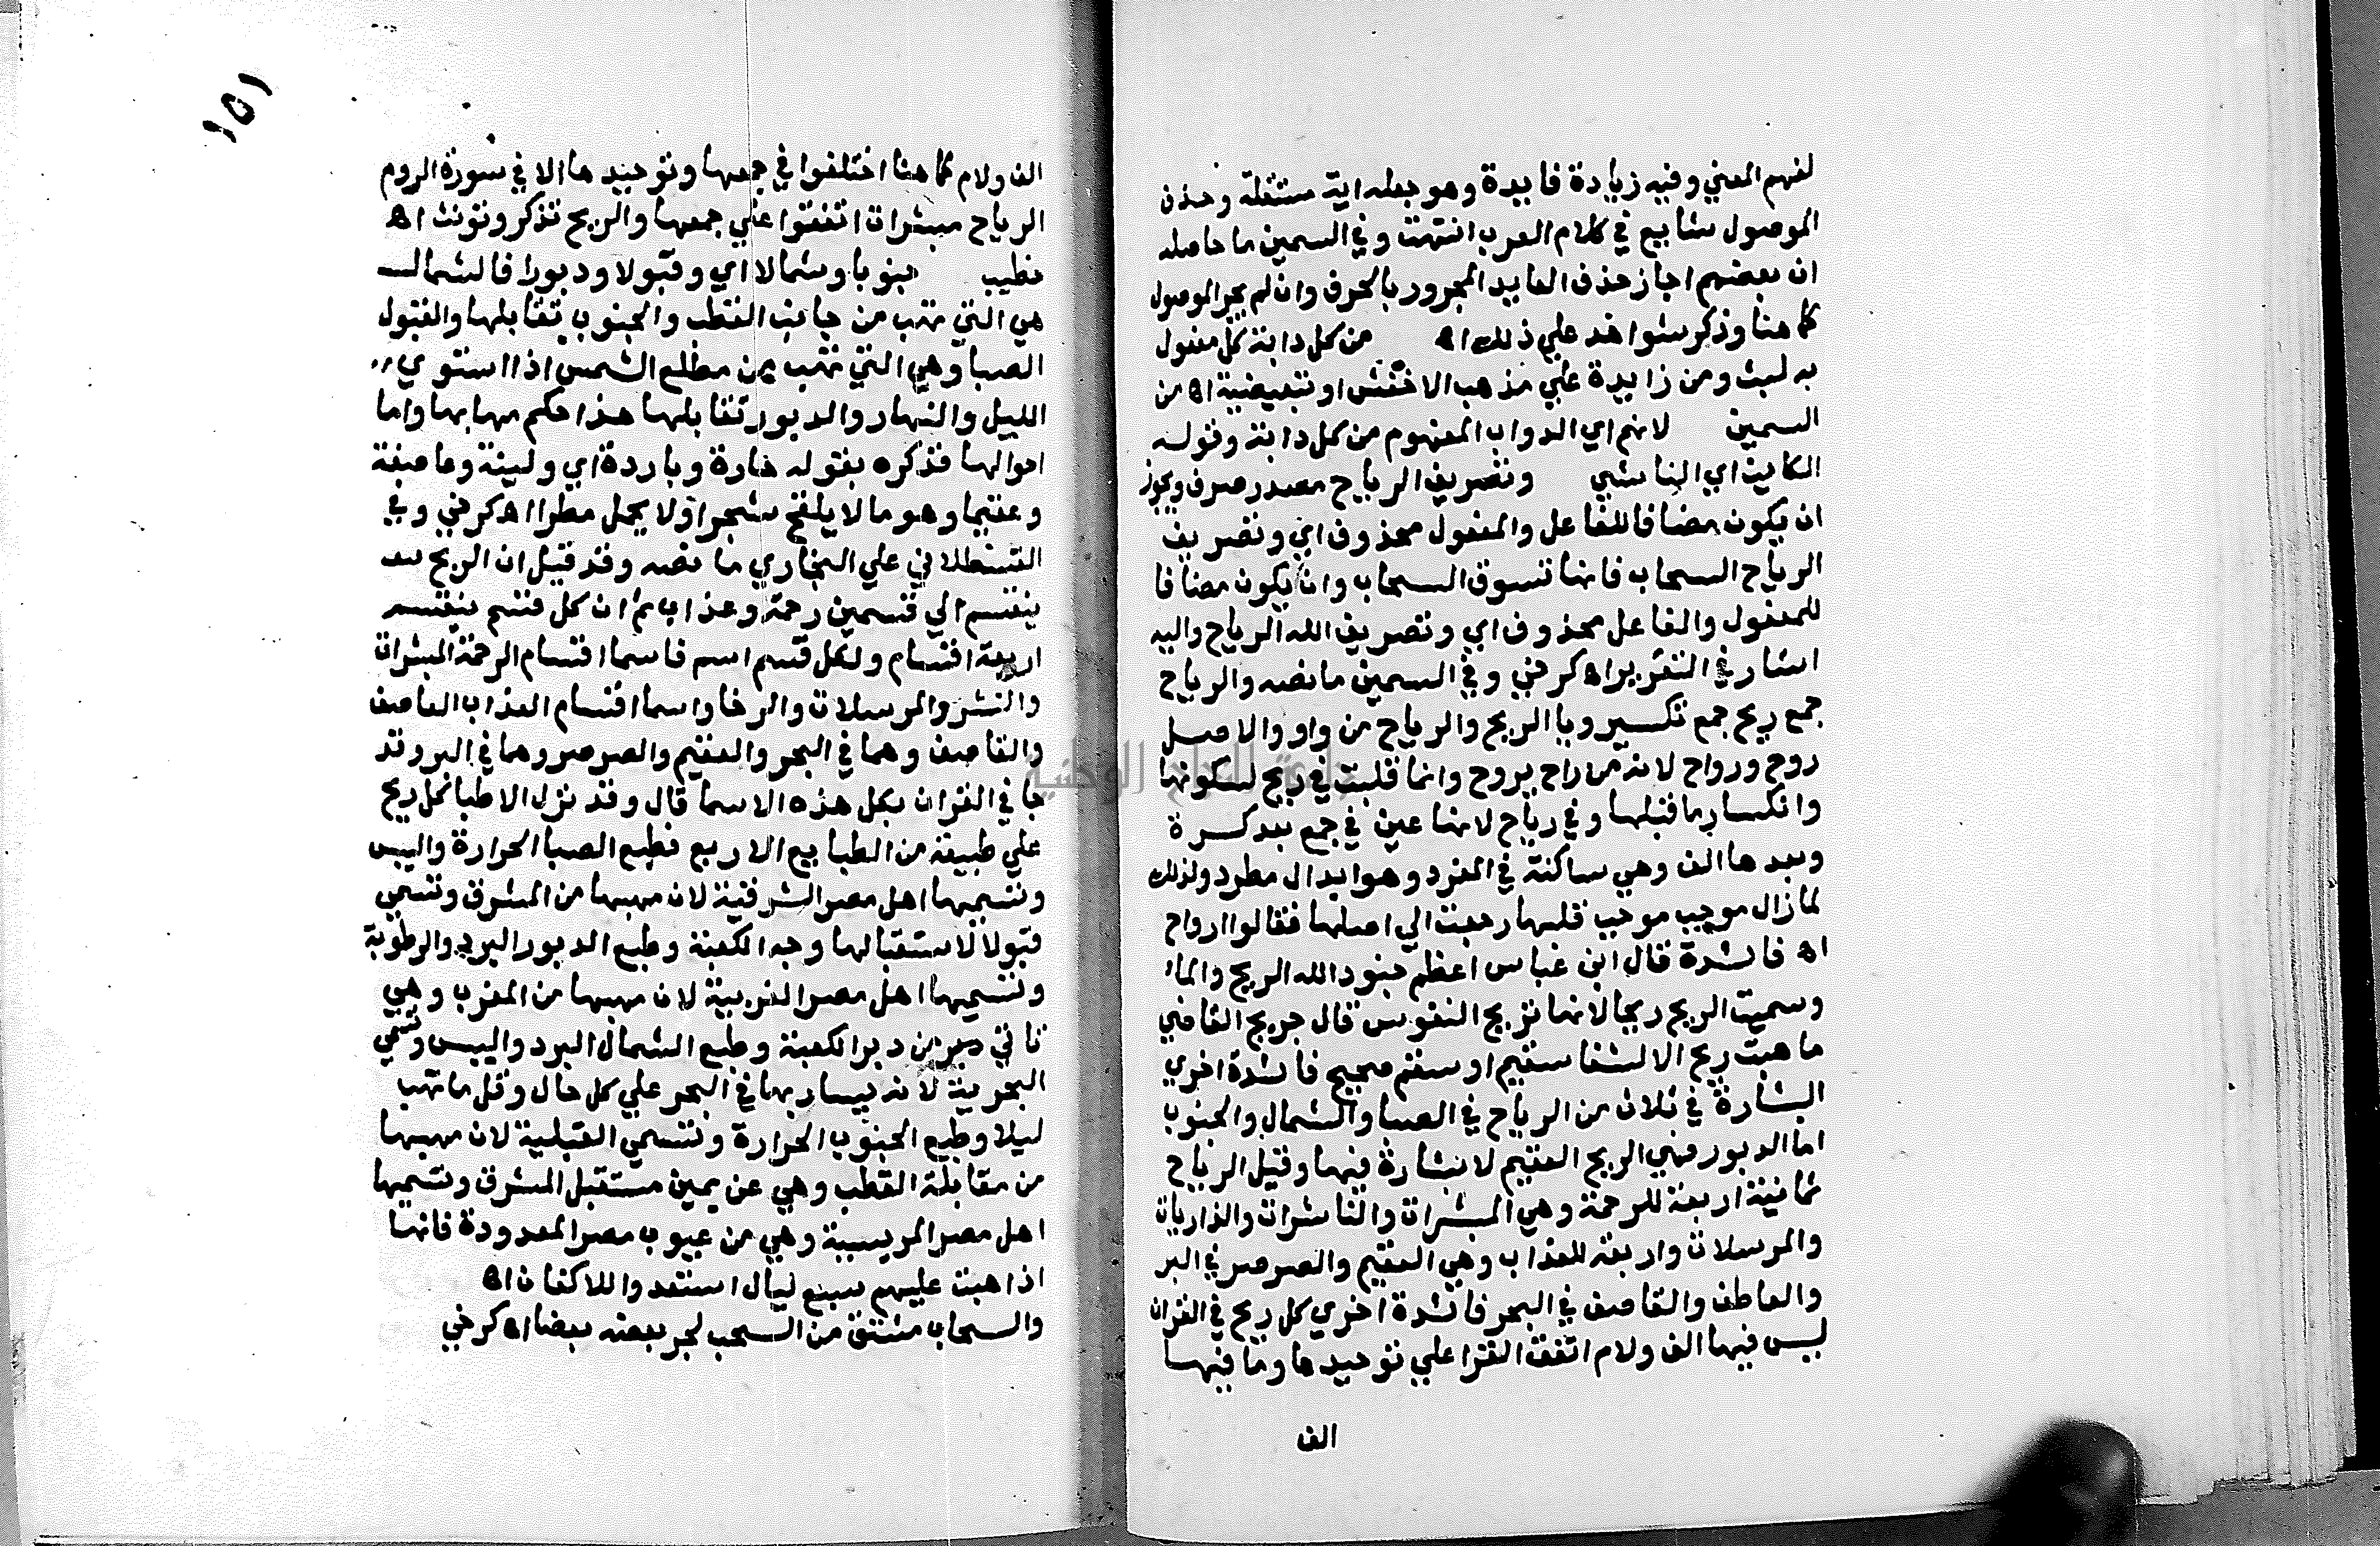 لفهم المعني وفيه زيادة فايدة وهو جعله اية مستقلة وحذف
الموصول شايع في كلام العرب انتهت وفي السمين ما حاصله
ان بعضهم اجاز حذف العايد المجرور بالحرف وان لم يجر الموصول
كما هنا وذكر شواهد علي ذلك اه من كل دابة كل مفعول
به لبث ومن زايدة علي مذهب الاخفش او تبعيضية اه من
السمين لانهم اي الدواب المفهوم من كل دابة وقوله
الكاين اي الناشي وتصريف الرياح مصدر صرف ويجوز
ان يكون مضافا للفاعل والمفعول محذوف اي وتصريف
الرياح السحاب فانها تسوق السحاب وان يكون مضافا
للمفعول والفاعل محذوف اي وتصريف الله الرياح واليه
اشار في التقرير اه كرخي وفي السمين ما نصه والرياح
جمع ريح جمع تكسير ويا الريح والرياح من واو والاصل
روح ورواح لانه من راح يروح وانما قلبت في ريح لسكونها
وانكسار ما قبلها وفي رياح لانها عين في جمع بعد كسرة
وبعدها الف وهي ساكنة في المفرد وهو ابدال مطرد ولذلك
لما زال موجب موجب قلبها رجعت الي اصلها فقالوا ارواح
اه فائدة قال ابن عباس اعظم جنود الله الريح والماء
وسميت الريح ريحا لانها تريح النفوس قال جريح القاضي
ما هبت ريح الا لشفا سقيم او سقم صحيح فائدة اخري
البشارة في ثلاث من الرياح في الصبا والشمال والجنوب
اما الدبور فهي الريح العقيم لا بشارة فيها وقيل الرياح
ثمانية اربعة للرحمة وهي المبشرات والناشرات والذاريات
والمرسلات واربعة للعذاب وهي العقيم والصرصر في البر
والعاصف والقاصف في البحر فائدة اخري كل ريح في القران
ليس فيها الف ولام اتفق القرا علي توحيدها وما فيها
الف
١٥١
الف ولام كما هنا اختلفوا في جمعها وتوحيدها الا في سورة الروم
الرياح مبشرات اتفقوا علي جمعها والريح تذكر وتونث اه
خطيب جنوبا وشمالا اي وقبولا ودبورا فالشمال
هي التي تهب من جانب القطب والجنوب تقابلها والقبول
الصبا وهي التي تهب من مطلع الشمس اذا استوي
الليل والنهار والدبور تقابلها هذا حكم مهابها واما
احوالها فذكره بقوله حارة وباردة اي ولينة وعاصفة
وعقيما وهو ما لا يلقح شجرا ولا يحمل مطرا اه كرخي وفي
القسطلاني علي البخاري ما نصه وقد قيل ان الريح
ينقسم الي قسمين رحمة وعذاب ثم ان كل قسم ينقسم
اربعة اقسام ولكل قسم اسم فاسما اقسام الرحمة المبشرات
والنشر والمرسلات والرخا واسما اقسام العذاب العاصف
والقاصف وهما في البحر والعقيم والصرصر وهما في البر وقد
جا في القران بكل هذه الاسما قال وقد نزل الاطبا كل ريح
علي طبيعة من الطبايع الاربع فطبع الصبا الحرارة واليبس
وتسميها اهل مصر الشرقية لان مهبها من المشرق وتسمي
قبولا لاستقبالها وجه الكعبة وطبع الدبور البرد والرطوبة
وتسميها اهل مصر الغربية لان مهبها من المغرب وهي
تاتي من دبر الكعبة وطبع الشمال البرد واليبس وتسمي
البحرية لانه يسار بها في البحر علي كل حال وقل ما تهب
ليلا وطبع الجنوب الحرارة وتسمي القبلية لان مهبها
من مقابلة القطب وهي عن يمين مستقبل المشرق وتسميها
اهل مصر المريسية وهي من عيوب مصر المعدودة فانها
اذا هبت عليهم سبع ليال استعدوا للاكفان اه
والسحاب مشتق من السحب لجر بعضه بعضا اه كرخي